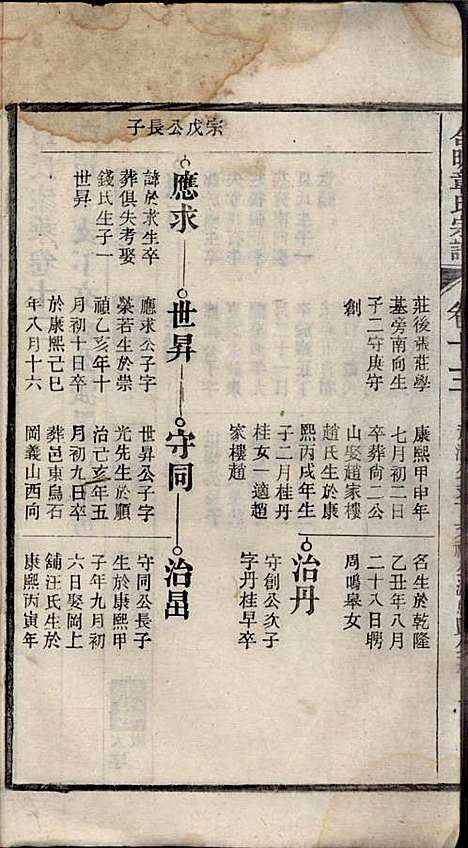 章氏宗譜
卷十三
莊後張莊學
基旁南向生
子二守庚守
創
康熙甲申年
七月初二日
卒葬尚二公
山娶趙家樓
趙氏生於康
熙丙戌年生
子二月桂丹
桂女一適趙
家樓趙
名生於乾隆
乙丑年八月
二十八日聘
周鳴皋女
治丹
守創公次子
字丹桂早卒
宗戊公長子
應求
諱於求生卒
葬俱失考娶
錢氏生子一
世昇
世昇
應求公子字
榮若生於崇
禎乙亥年十
月初十日卒
於康熙己巳
年八月十六
守同
世昇公子字
光先生於順
治己亥年五
月初九日卒
葬邑東烏石
岡義山西向
治昌
守同公長子
生於康熙甲
子年九月初
六日娶岡上
舖汪氏生於
康熙丙寅年